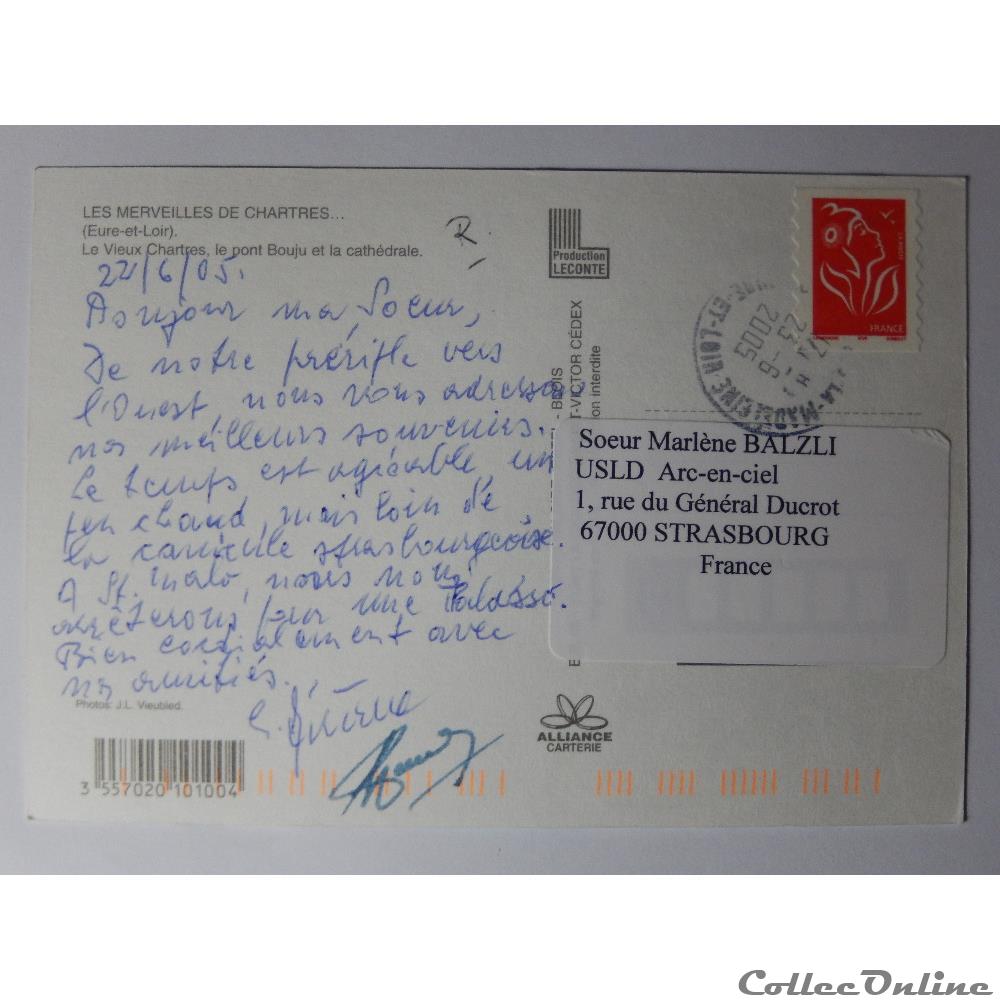 LES MERVEILLES DE CHARTRES...
(Eure-et-Loir).
Le Vieux Chartres, le pont Bouju et la cathédrale.
R
22/6/05.
Bonjour ma Soeur,
De notre périple vers
l'Ouest, nous vous adressons
nos meilleurs souvenirs.
Le temps est agréable, un
peu chaud, mais loin de
la canicule strasbourgeoise.
A St. Malo, nous nous
arrêterons pour une Thalasso.
Bien cordialement avec
nos amitiés.
Photos: J.L. Vieubled.
3 557020 101004
Production
LECONTE
- BLOIS
T-VICTOR CÉDEX
on interdite
ALLIANCE
CARTERIE
LA POSTE
FRANCE
LA-MADELEINE
EURE-ET-LOIR
23-6
2005
Soeur Marlène BALZLI
USLD Arc-en-ciel
1, rue du Général Ducrot
67000 STRASBOURG
France
CollecOnline